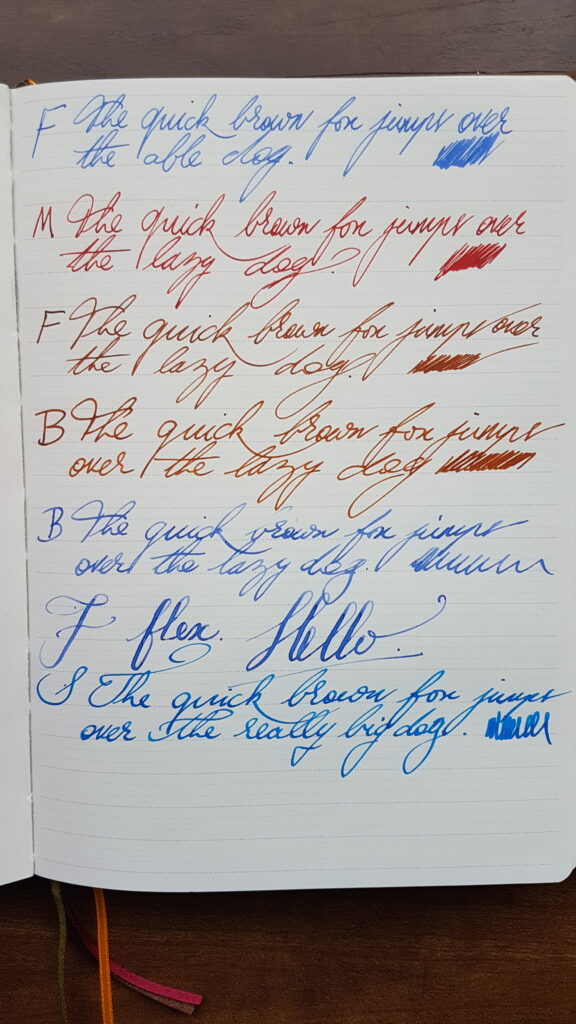 F The quick brown fox jumps over
the able dog.
M The quick brown fox jumps over
the lazy dog.
F The quick brown fox jumps over
the lazy dog.
B The quick brown fox jumps
over the lazy dog
B The quick brown fox jumps
over the lazy dog.
F flex. Hello.
S The quick brown fox jumps
over the really big dog.